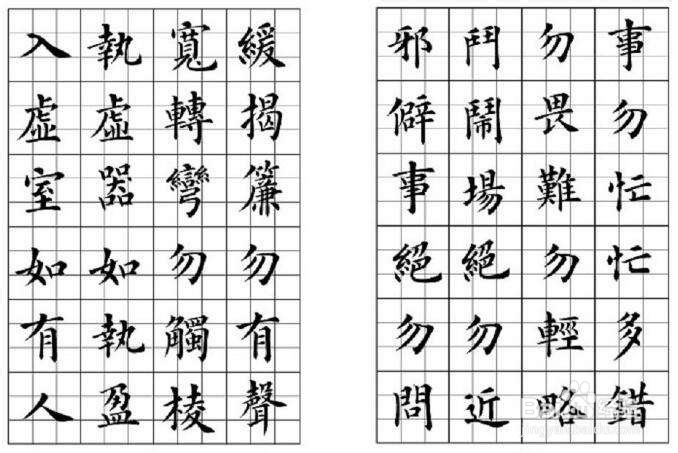 緩揭簾勿有聲
寬轉彎勿觸棱
執虛器如執盈
入虛室如有人
事勿忙忙多錯
勿畏難勿輕略
鬥鬧場絕勿近
邪僻事絕勿問